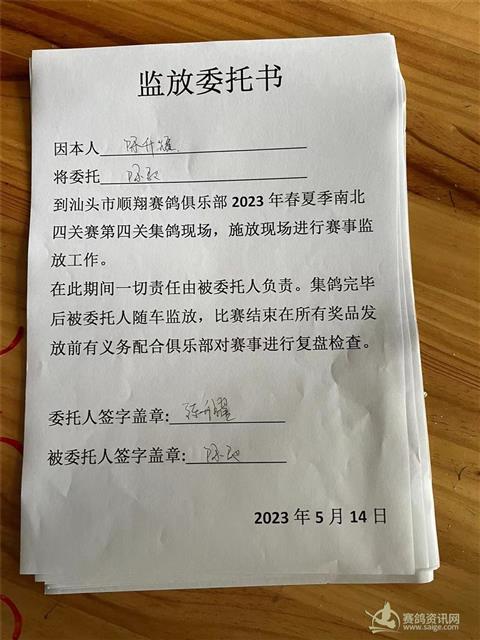 监放委托书
因本人 陈升耀
将委托
到汕头市顺翔赛鸽俱乐部 2023 年春夏季南北
四关赛第四关集鸽现场，施放现场进行赛事监
放工作。
在此期间一切责任由被委托人负责。集鸽完毕
后被委托人随车监放，比赛结束在所有奖品发
放前有义务配合俱乐部对赛事进行复盘检查。
委托人签字盖章: 陈升耀
被委托人签字盖章:
2023 年 5 月 14 日
赛鸽资讯网
www.saige.com